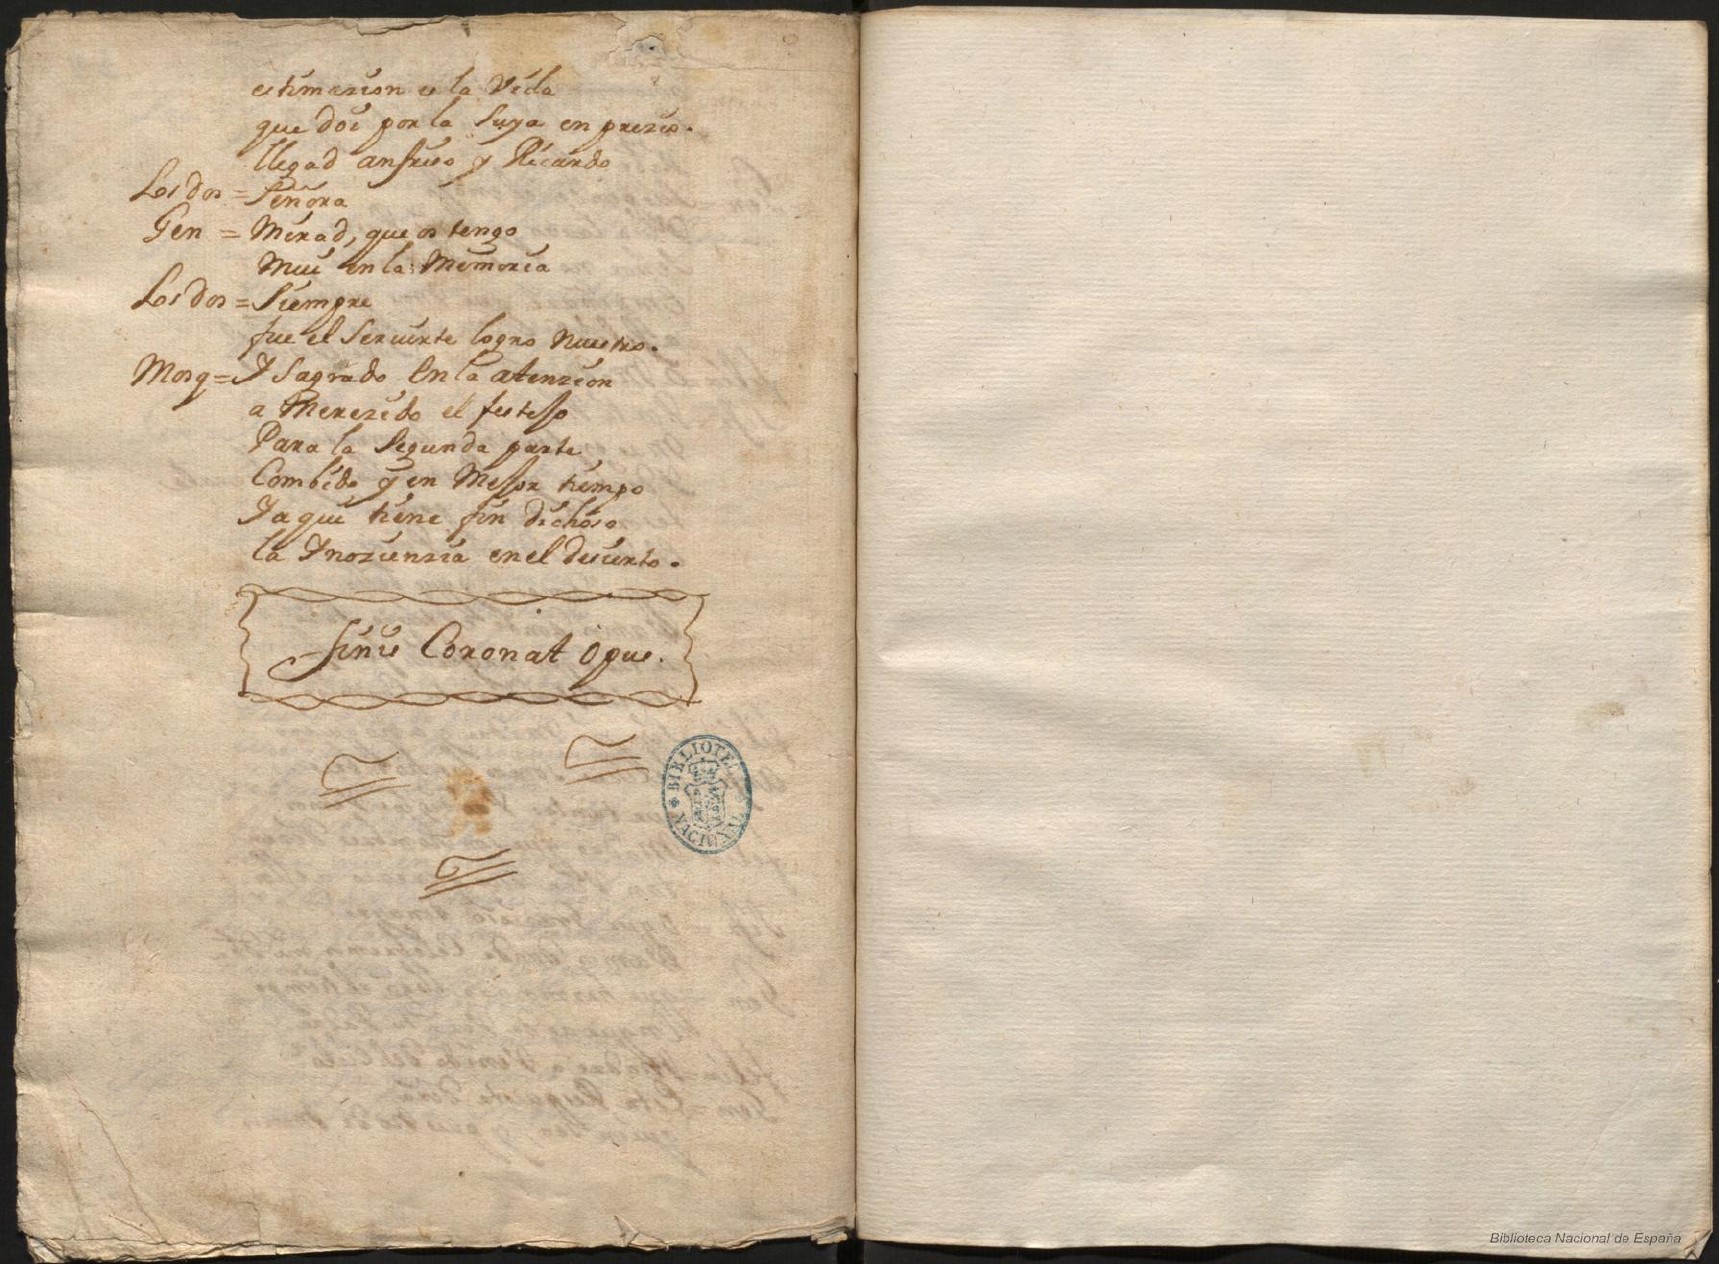 estimazion es la Vida
que doi por la Suya en prezio.
llegad anfriso y Ricardo
Los dos = Señora
Gen = Mirad, que os tengo
Mui en la Memoria
Los dos = Siempre
fue el Seruirte logro Nuestro.
Mosq = Y Sagrado En la atenzion
a Merezido el festesso
Para la Segunda parte
Combido y en Messor tiempo
Y aqui tiene fin dichoso
la Ynozienzia en el desierto.
finis Coronat Opus.
BIBLIOTECA NACIONAL
Biblioteca Nacional de España